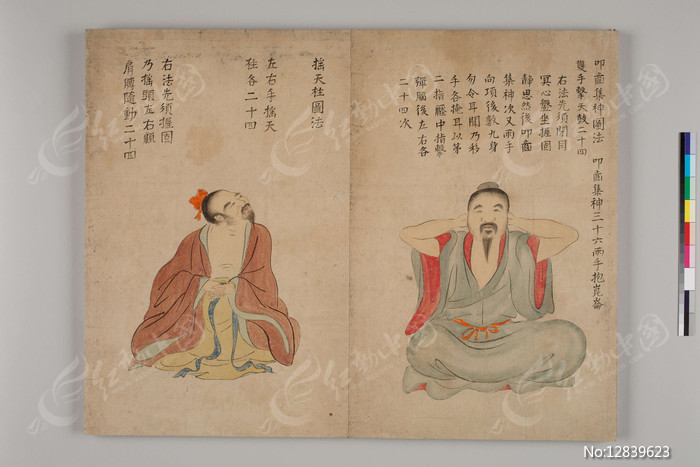 叩齒集神圖法 叩齒集神三十六兩手抱崑崙
雙手擊天鼓二十四
右法先須閉目
冥心盤坐握固
靜思然後叩齒
集神次叉兩手
向項後數九身
勿令耳聞乃移
手各掩耳以第
二指壓中指擊
彈腦後左右各
二十四次
搖天柱圖法
左右手搖天
柱各二十四
右法先須握固
乃搖頭左右顧
肩膊隨動二十四
红动中国
No:12839623